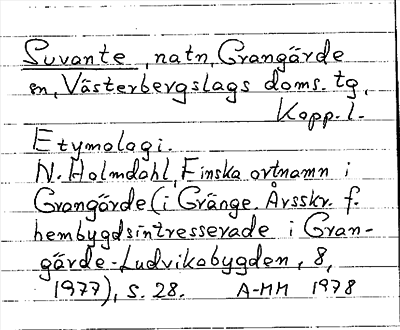 Suvante, natn, Grangärde
sn, Västerbergslags doms. tg,
Kopp. l.
Etymologi.
N. Holmdahl, Finska ortnamn i
Grangärde (i Gränge. Årsskr. f.
hembygdsintresserade i Gran-
gärde-Ludvikabygden, 8,
1977), s. 28. A-MH 1978